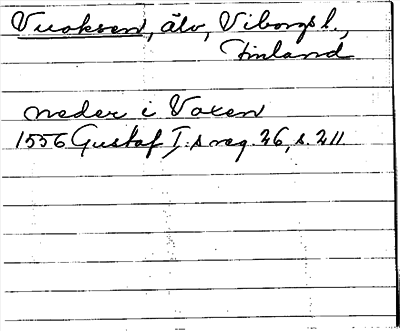 Vuoksen, älv, Viborgs l.,
Finland
neder i Voxen
1556 Gustaf I:s reg. 26, s. 211